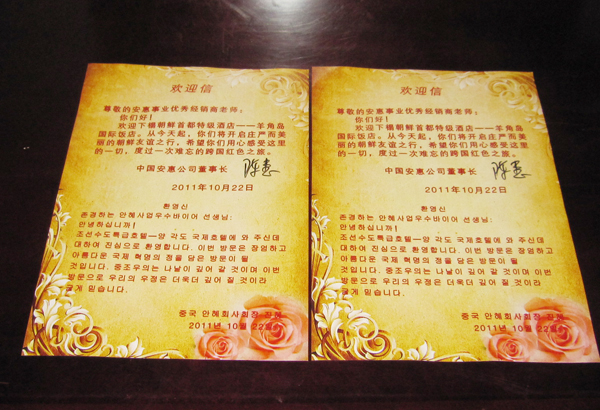 欢迎信
尊敬的安惠事业优秀经销商老师：
你们好！
欢迎下榻朝鲜首都特级酒店——羊角岛
国际饭店。从今天起，你们将开启庄严而美
丽的朝鲜友谊之行，希望你们用心感受这里
的一切，度过一次难忘的跨国红色之旅。
中国安惠公司董事长 陈惠
2011年10月22日
환영신
존경하는 안혜사업우수바이어 선생님:
안녕하십니까!
조선수도특급호텔—양 각도 국제호텔에 와 주신데
대하여 진심으로 환영합니다. 이번 방문은 장엄하고
아름다운 국제 혁명의 정을 담은 방문이 될
것입니다. 중조우의는 나날이 깊어 갈 것이며 이번
방문으로 우리의 우정은 더욱더 깊어 질 것이라
굳게 믿습니다.
중국 안혜회사회장
2011년 10월 22일
欢迎信
尊敬的安惠事业优秀经销商老师：
你们好！
欢迎下榻朝鲜首都特级酒店——羊角岛
国际饭店。从今天起，你们将开启庄严而美
丽的朝鲜友谊之行，希望你们用心感受这里
的一切，度过一次难忘的跨国红色之旅。
中国安惠公司董事长 陈惠
2011年10月22日
환영신
존경하는 안혜사업우수바이어 선생님:
안녕하십니까!
조선수도특급호텔—양 각도 국제호텔에 와 주신데
대하여 진심으로 환영합니다. 이번 방문은 장엄하고
아름다운 국제 혁명의 정을 담은 방문이 될
것입니다. 중조우의는 나날이 깊어 갈 것이며 이번
방문으로 우리의 우정은 더욱더 깊어 질 것이라
굳게 믿습니다.
중국 안혜회사회장
2011년 10월 22일